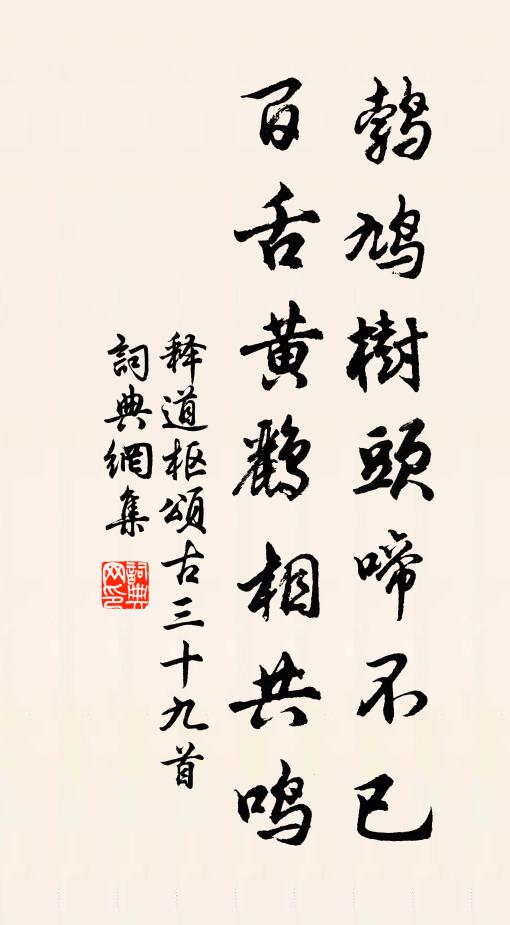 鹁鸠樹頭啼不已
百舌黄鹂相共鸣
释道枢頌古三十九首
詞典網集
詞典网印